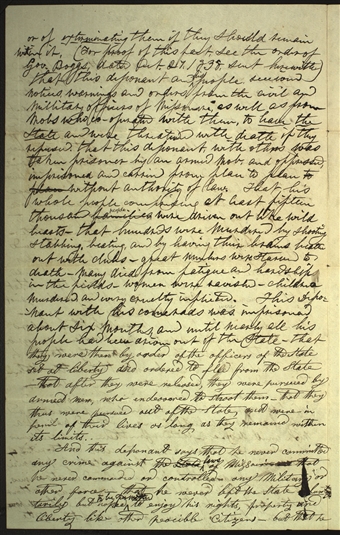 or of exterminating them if they should remain
in it, (For proof of this fact see the order of
Gov Boggs, date Oct 27. 1838. sent herewith)
that this deponent and people received
notices warnings and orders from the civil and
Military officers of Missouri, as well as from
Mobs who co-operated with them, to leave the
State and were threatened with death if they
refused that this deponent with others was
taken prisoner by an armed Mob and oppressed
imprisoned and carried from place to place
without authority of law. That his
whole people comprising at least fifteen
thousand families were driven out like wild
beasts - that hundreds were Murdered by shooting
stabbing, beating, and by having their brains beat
out with clubs - great numbers were starved to
death - Many died from fatigue and hardship
in the fields - women were ravished - children
murdered and every cruelty inflicted. This depo
nent with his comerads was imprisoned
about six Months, and until nearly all his
people had been driven out of the State - that
they were then by order of the officers of the State
set at liberty and ordered to flee from the State
- that after they were released, they were pursued by
armed men, who endeavored to shoot them - that they
thus were pursued out of the State, and were in
peril of their lives as long as they remained within
its limits.
And this deponent says that he never committed
any crime against the laws of Missouri that
he never commanded or controlled any Military or
other force, that he never left the State
but hoped to enjoy his rights, property and
liberty like other peacible Citizens - but that he